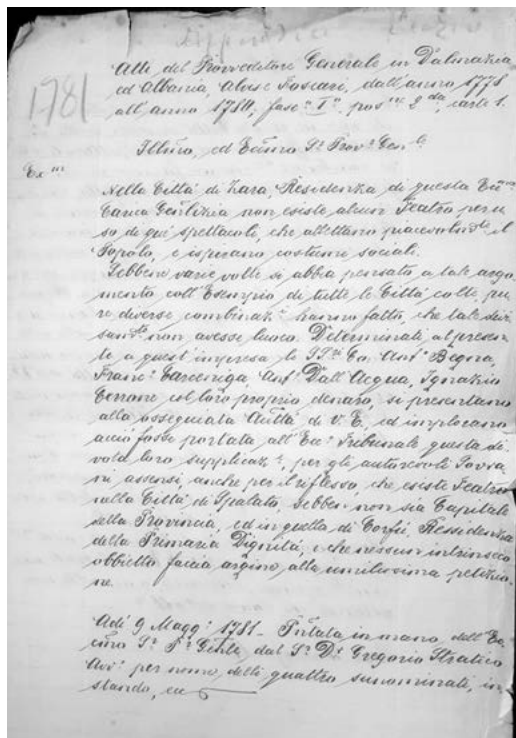 Atti del Provveditore Generale in Dalmazia
ed Albania, Alvise Foscari, dall'anno 1778
1781
all'anno 1781, fasc.° "I", pos.ne 2da, carte 1.
Illmo, ed Eccmo Sr. Prov.r Gen.le
Ex.m
Nella Città di Zara, Residenza di questa
Carica Gen.lizia non esiste alcun Teatro per u-
so di que' spettacoli, che allettano piacevolm.te il
Popolo, e ispirano costumi sociali.
Sebben varie volte si abbia pensato a tale argo-
mento coll'Esempio di tutte le Città colte, pu-
re diverse combinaz.i hanno fatto, che tale
non avesse luoco. Determinati al presen-
te a quest'impresa li Co. Ant.o Begna,
Franc.o Carceniga, Ant.o Dall'Acqua, Ignazio
col loro proprio denaro, si presentano
alla ossequiata di V. E., ed implorano
acciò fosse portata all'Ecc.o Tribunale questa di-
vota loro supplicaz.e, per gli autorevoli Sovra-
ni assensi, anche per il riflesso, che esiste Teatro
nella Città di Spalato, sebben non sia Capitale
della Provincia, ed in quella di Corfù, Ressidenza
della Primaria Dignità, e che nessun intrinseco
obbietto faccia argine alla umilissima petizio-
ne.
Adì 9 Magg.o 1781 - P.ntata in mano dell'Ec-
cmo Sr. P.r Gen.le dal Sr. Dr. Gregorio Stratico
Avv.o per nome delli quattro sunominati, in-
stando, ec